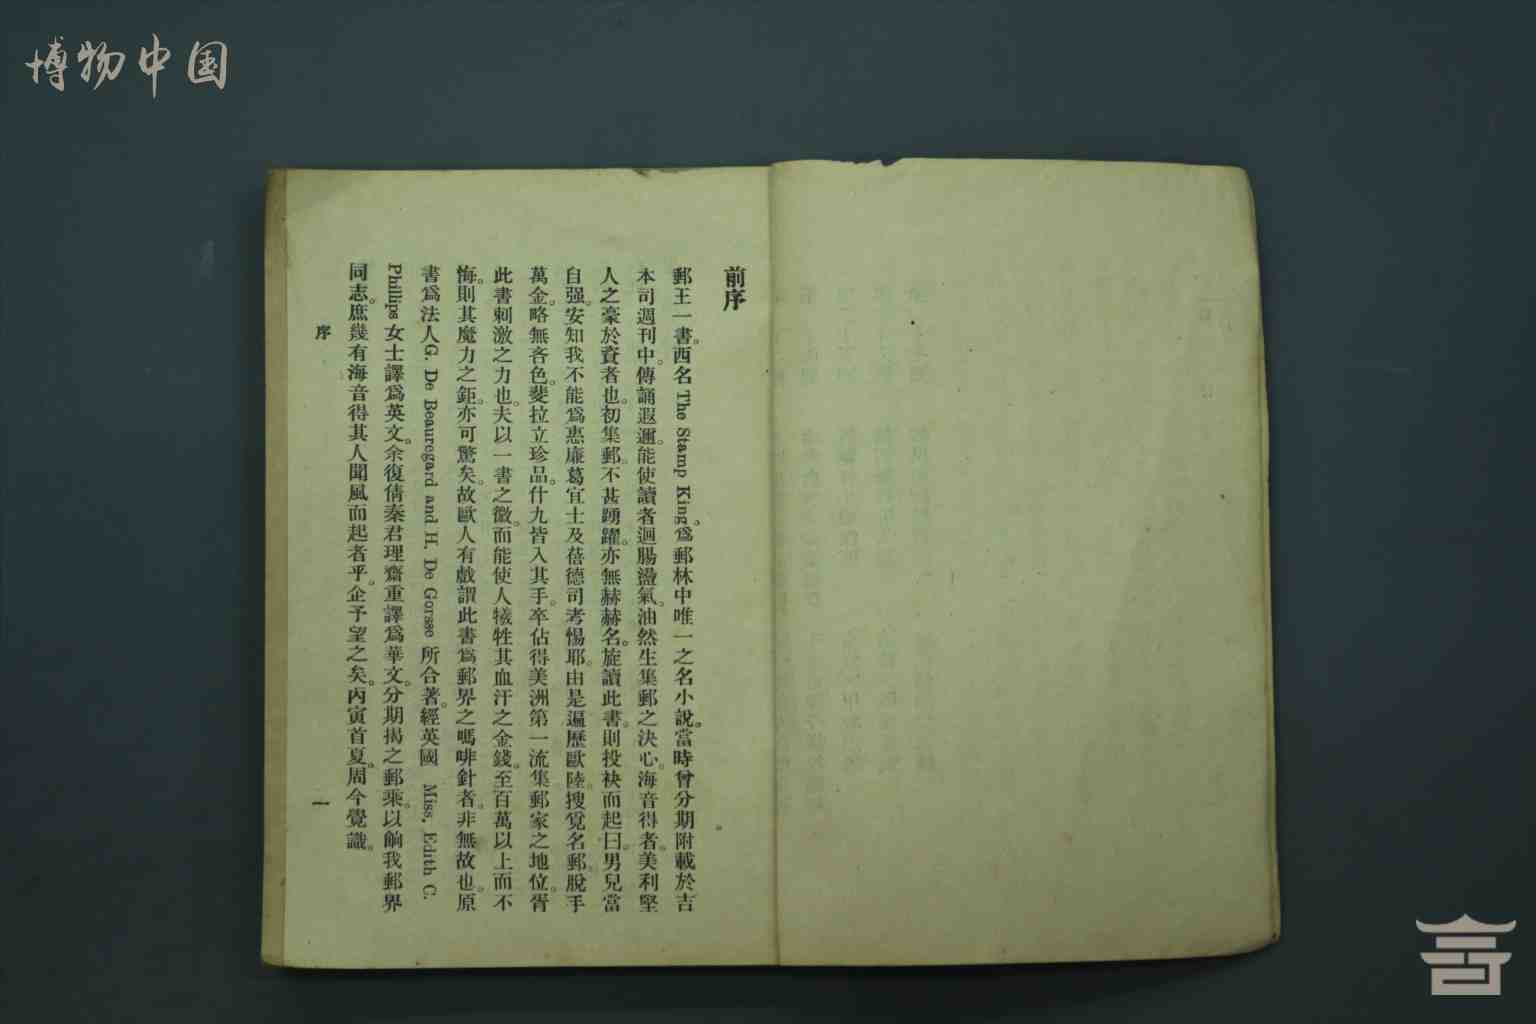 博物中国
前序
郵王一書。西名 The Stamp King。爲郵林中唯一之名小說。當時曾分期附載於吉
本司週刊中。傳誦遐邇。能使讀者迴腸盪氣。油然生集郵之決心。海音得者。美利堅
人之豪於資者也。初集郵。不甚踴躍。亦無赫赫名。旋讀此書。則投袂而起曰。男兒當
自强。安知我不能爲惠廉葛宜士及蓓德司考惕耶。由是遍歷歐陸。搜覓名郵。脫手
萬金。略無吝色。斐拉立珍品。什九皆入其手。卒佔得美洲第一流集郵家之地位。胥
此書刺激之力也。夫以一書之微。而能使人犧牲其血汗之金錢。至百萬以上而不
悔。則其魔力之鉅。亦可驚矣。故歐人有戲謂此書爲郵界之嗎啡針者。非無故也。原
書爲法人 G. De Beauregard and H. De Gorsse 所合著。經英國 Miss. Edith C.
Phillips 女士譯爲英文。余復倩秦君理齋重譯爲華文。分期揭之郵乘。以餉我郵界
同志。庶幾有海音得其人聞風而起者乎。企予望之矣。丙寅首夏。周今覺識。
序
一